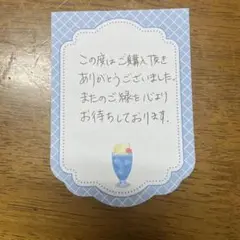 この度はご購入頂き
ありがとうございました。
またのご縁を心より
お待ちしております。